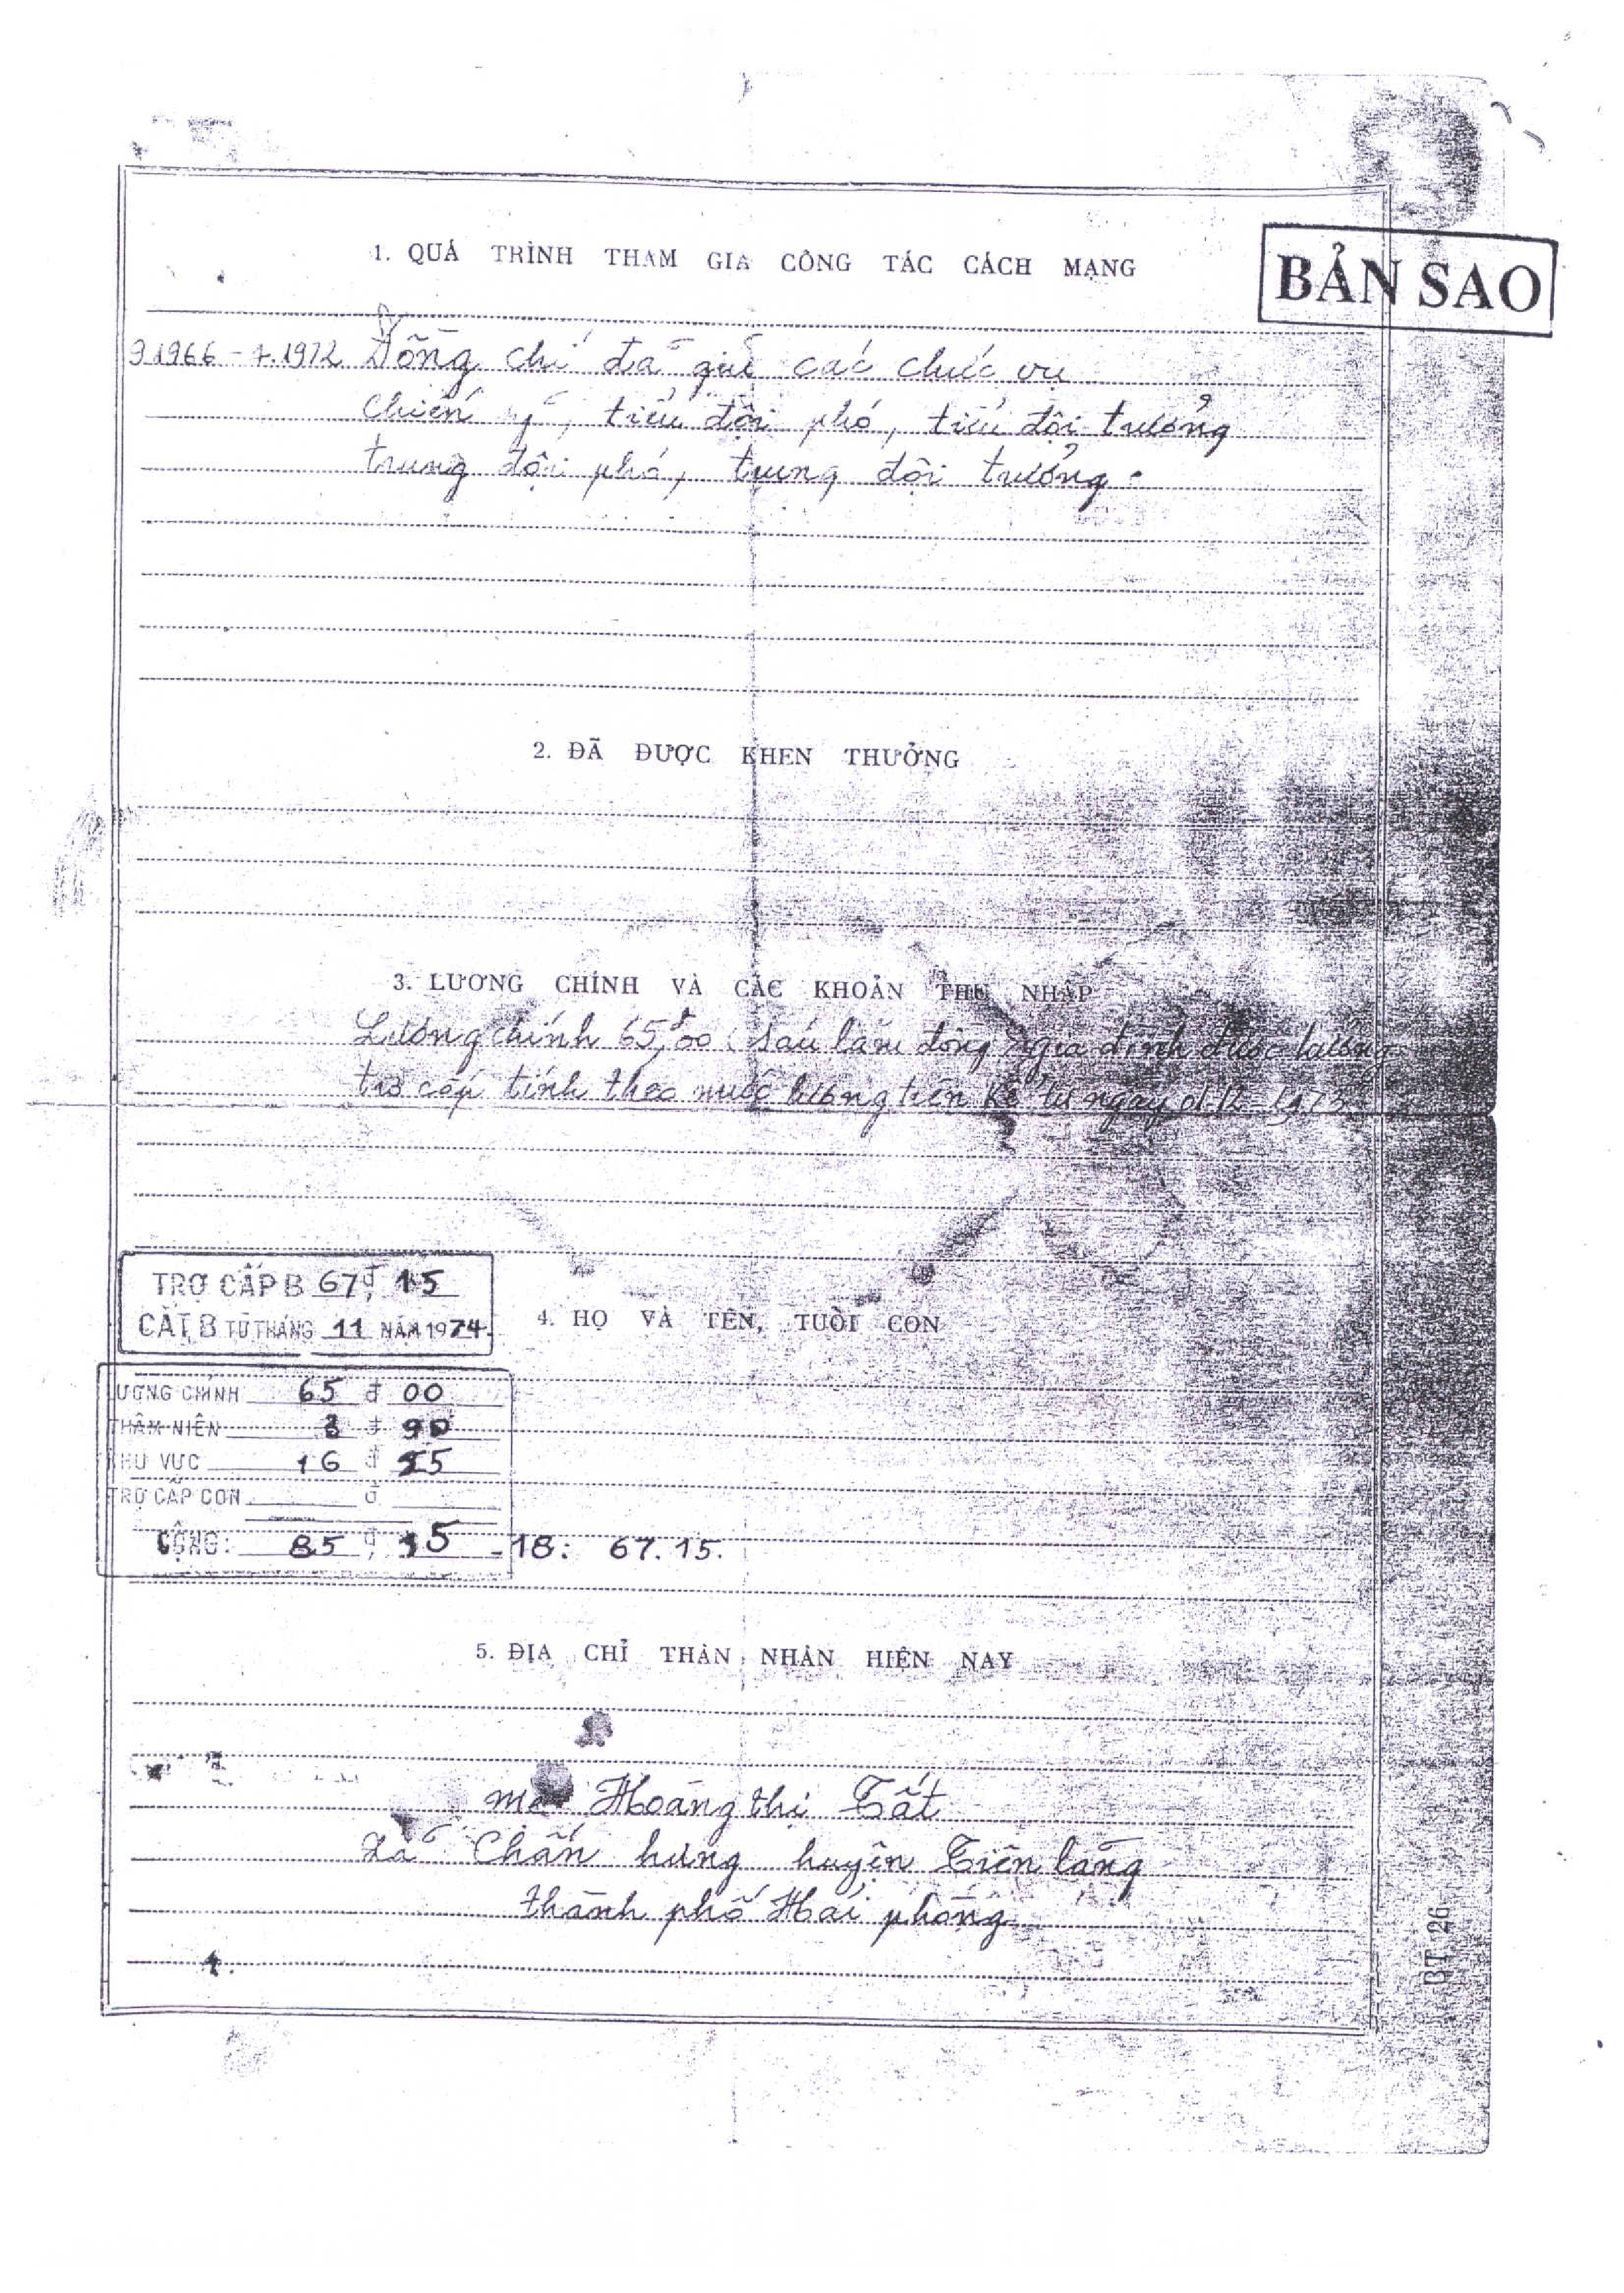 BẢN SAO
1. QUÁ TRÌNH THAM GIA CÔNG TÁC CÁCH MẠNG
9.1966 - 7.1972 Đồng chí đã giữ các chức vụ
chiến sỹ, tiểu đội phó, tiểu đội trưởng
trung đội phó, trung đội trưởng.
2. ĐÃ ĐƯỢC KHEN THƯỞNG
3. LƯƠNG CHÍNH VÀ CÁC KHOẢN THU NHẬP
Lương chính 65,đ00: Sáu lăm đồng gia đình được hưởng
trợ cấp tính theo mức lương trên kể từ ngày 01-12-1973
TRỢ CẤP B 67đ,15
CẮT B TỪ THÁNG 11 NĂM 1974.
4. HỌ VÀ TÊN, TUỔI CON
ƯƠNG CHÍNH 65 đ 00
THÂM NIÊN 3 đ 90
KHU VỰC 16 đ 25
TRỢ CẤP CON đ
CỘNG: 85 đ, 15 - 18: 67.15.
5. ĐỊA CHỈ THÂN NHÂN HIỆN NAY
mẹ Hoàng thị Tất
Xã Chấn hưng huyện Tiên lãng
thành phố Hải phòng
BT 26